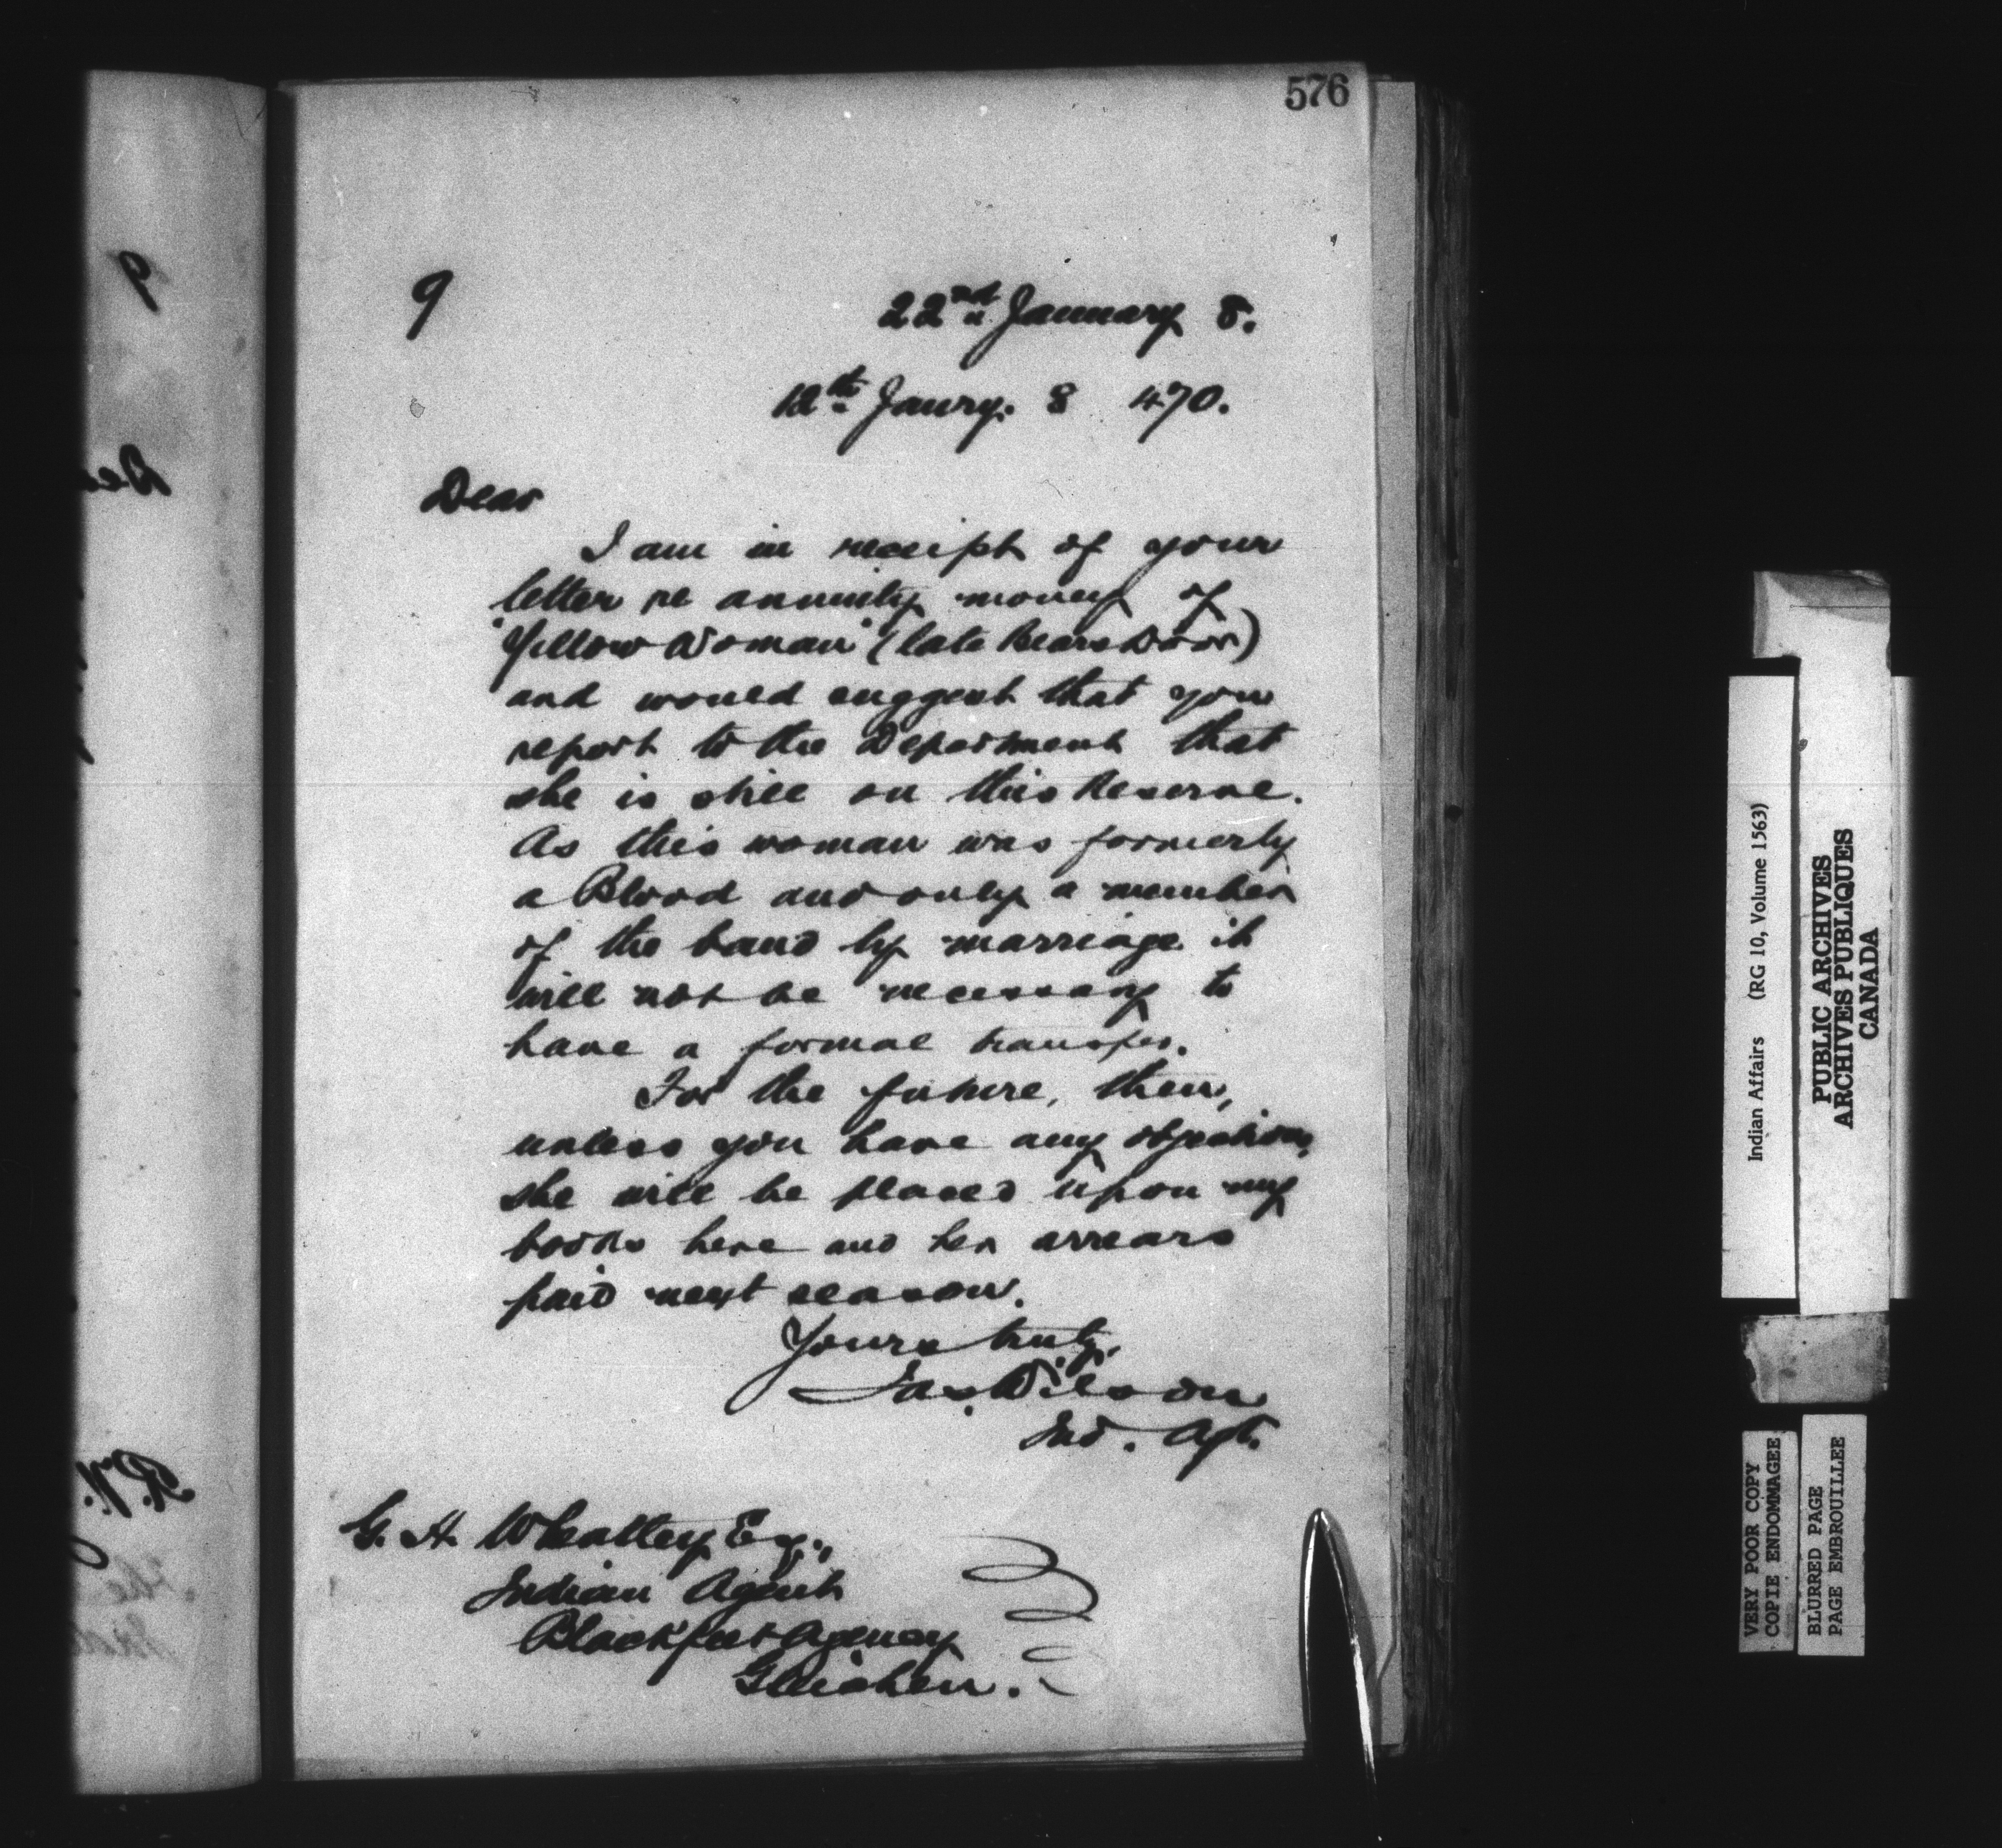 576
9
22nd January 8.
12th Janry. 8 470.
Dear
I am in receipt of your
letter re annuity money of
"Yellow Woman" (late Bears Door)
and would suggest that you
report to the Department that
she is still on this Reserve.
As this woman was formerly
a Blood and only a member
of the band by marriage it
will not be necessary to
have a formal transfer.
For the future, then,
unless you have any objections,
she will be placed upon my
books here and her arrears
paid next season.
Yours truly,
Jas. Wilson
Ind. Agt.
G. H. Wheatley Esq.,
Indian Agent
Blackfoot Agency
Gleichen.
Indian Affairs (RG 10, Volume 1563)
PUBLIC ARCHIVES
ARCHIVES PUBLIQUES
CANADA
VERY POOR COPY
COPIE ENDOMMAGEE
BLURRED PAGE
PAGE EMBROUILLEE